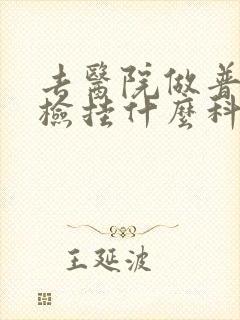 去醫院做普
檢挂什麼科
王延波